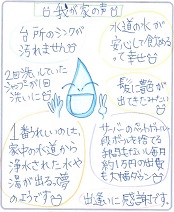 我が家の声
台所のシンクが
汚れません
水道の水が
安心して飲める
って幸せ
2回洗いしていた
シャンプーが1回
洗いに
髪に艶が
出てきたみたい
1番うれしいのは、
家中の水道から
浄水された水や
湯が出る夢
のようです
サーバーのペットボトル
段ボールを捨てる
毎月
約1万円の出費
も大幅ダウン
出逢いに感謝です。